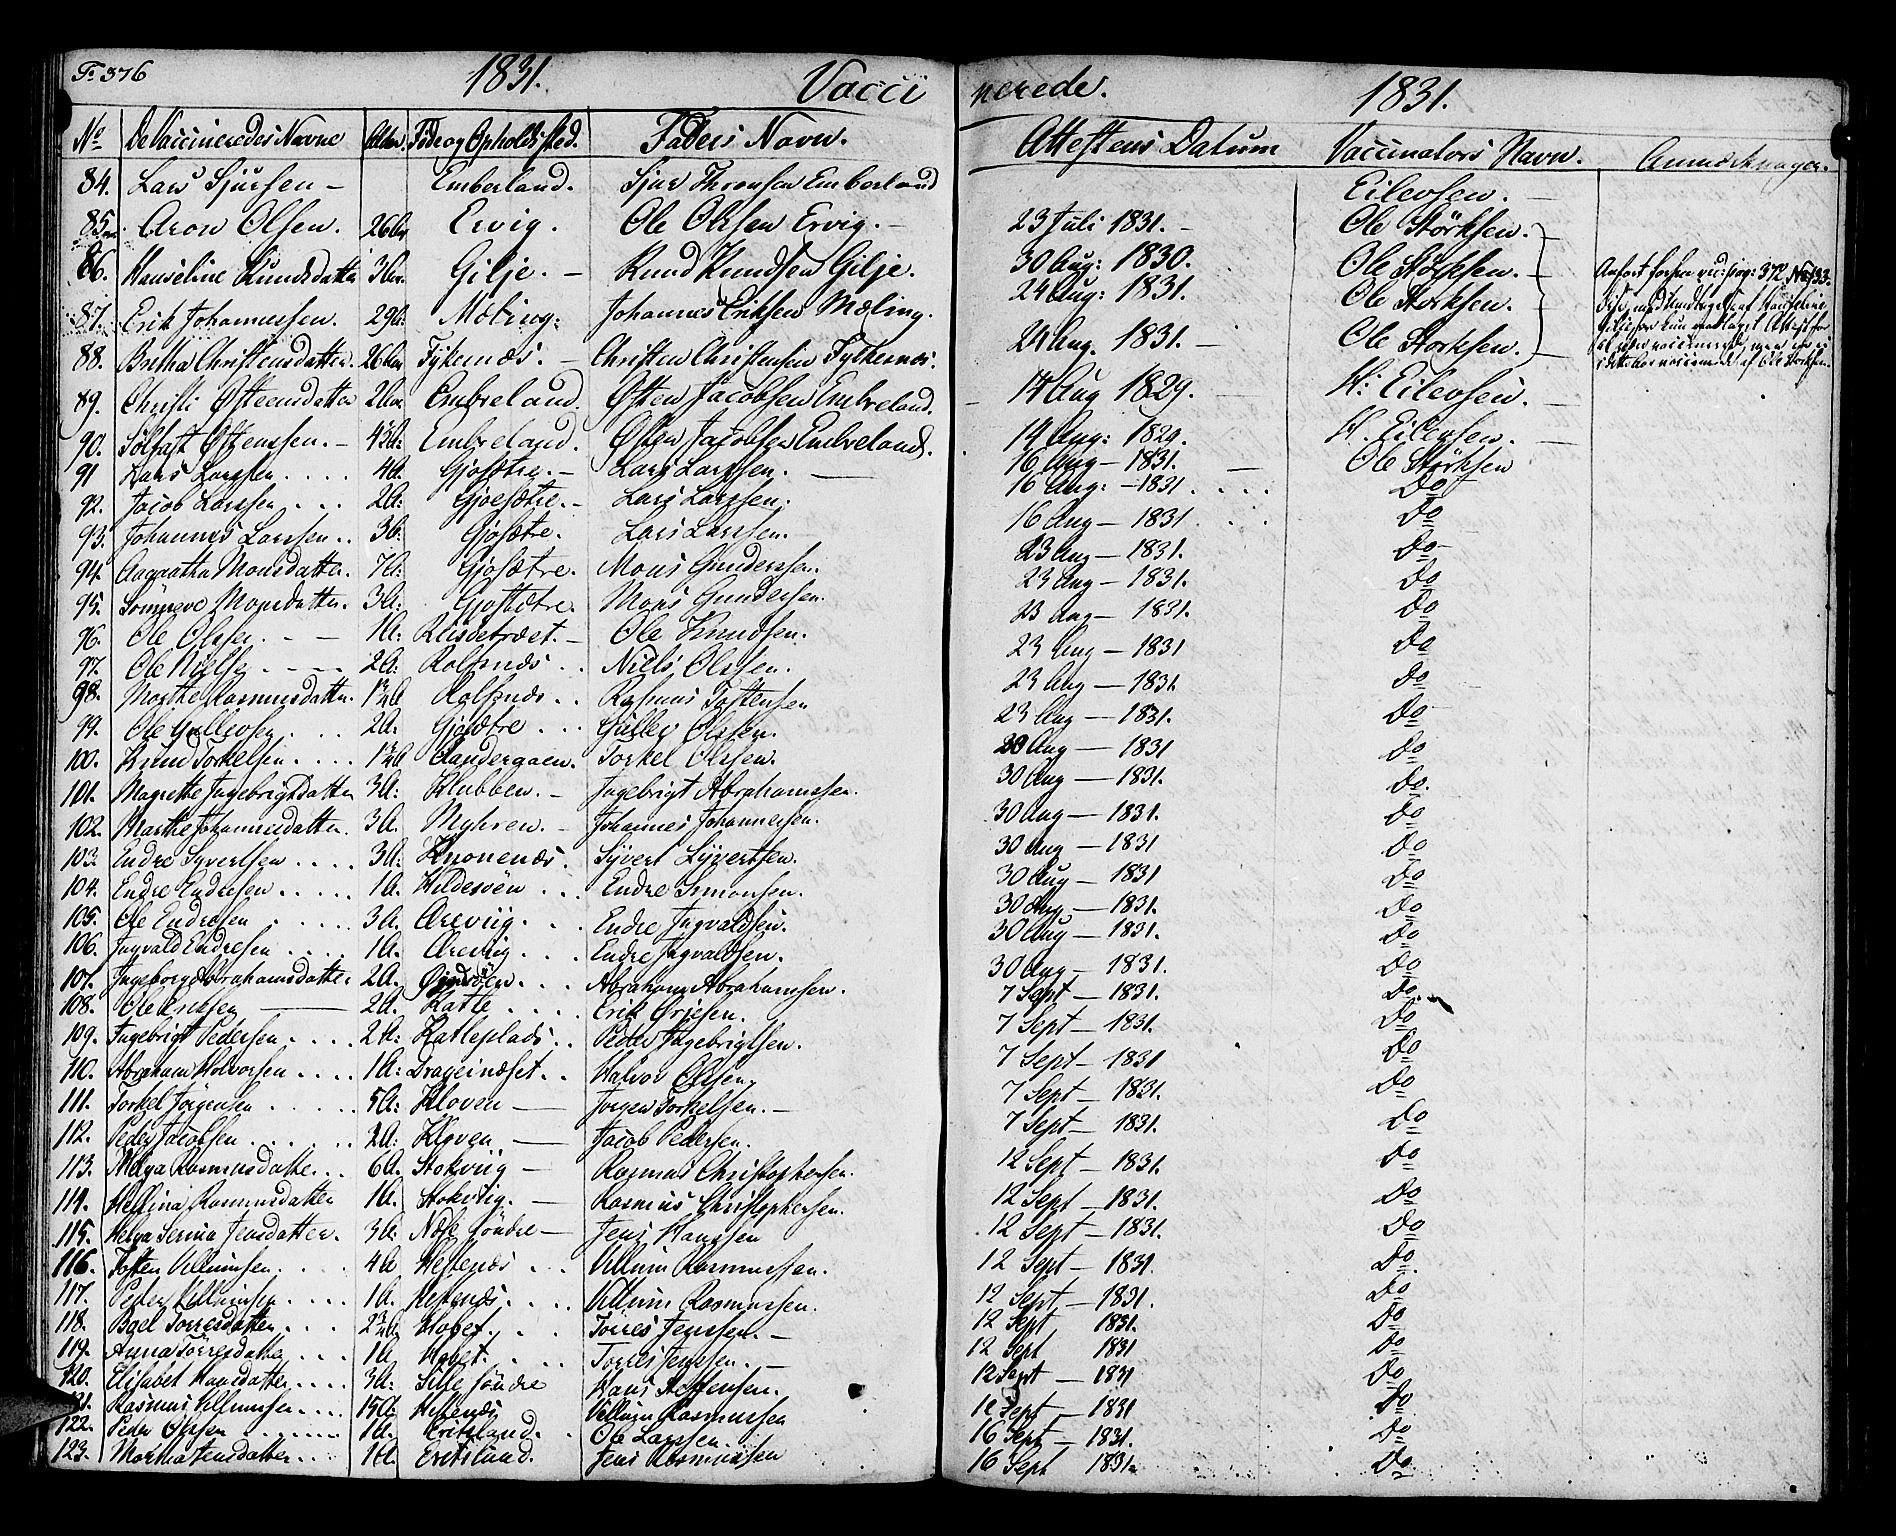 F. 376 1831. Vacci nerede. 1831.
No De Vaccineredes Navne Alder. Føde og Opholdssted. Faders Navn. Attestens Datum Vaccinators Navn. Anmærkninger.
84. Lars Sjursen - Emberland. Sjur Thronsen Emberland Eilevsen. -
85. Aron Olsen. 26 Ervig. - Ole Olsen Ervig. - 23 Juli 1831. - Ole Störksen.
86. Hanseline Knudsdatter 3 Gilje. - Knud Knudsen Gilje. 30 Aug: 1830. Ole Störksen. - Anført forhen ved pag: 372 No 133.
87. Erik Johannessen. 29 Mæling. Johannes Eriksen Mæling. 24 Aug: 1831. Ole Storksen.
88. Britha Christensdatter. 26 Fykenæs. - Christen Christensen Fykenæs. 24 Aug. 1831. - Ole Storksen. -
89. Christi Østensdatter 2 Embreland. Østen Jacobsen Embreland. 14 Aug 1829. H: Eilevsen. -
90. Solfast Østenssen. - 4 Embreland. Østen Jacobsen Embreland. 14 Aug: 1829. H. Eilevsen. -
91 Lars Larssen .... 4A. Gjosætre. - Lars Larssen. 16 Aug - 1831. - Ole Störksen
92. Jacob Larssen .... 2A: Gjosætre. - Lars Larssen. 16 Aug: - 1831 .... Do
93. Johannes Larssen .. 3A: Gjosætre. Lars Larssen. 16 Aug - 1831 ... Do
94. Aagaatha Monsdatter. 7A: Gjosætre. Mons Gunderssen. 23 Aug - 1831. Do
95. Sönneve Monsdatter. 3A: Gjosætre. Mons Gundersen. 23 Aug - 1831. Do
96. Ole Olssen. - - 1A: - Ole Knudsen. 23 Aug - 1831. Do
97. Ole Nielsen - - - - 2A: Rolfsnæs .. Niels Olssen. 23 Aug - 1831 Do
98. Marthe Rasmusdatter. 1½A Rolfsnæs .. Rasmus Tostensen 23 Aug - 1831. Do
99. Ole Gullevsen. ... 2A. Gjosætre ... Gullev Olssen. 23 Aug - 1831. Do
100. Knud Torkelsen .... 1½A Sandergaen. Torkel Olssen. 20 Aug - 1831 Do
101. Magrethe Ingebrigtsdatter 3A: Klubben. - Ingebrigt Abrahamssen. 30 Aug - 1831. Do.
102. Marthe Johannesdatter. 3A. Myhren. - Johannes Johannesen. 30 Aug - 1831. Do
103. Endre Syvertsen .... 3A: Knonenæs. Syvert Syvertsen. 30 Aug - 1831 Do
104. Endre Endresen ..... 1A: Hildesöen ... Endre Simonsen. 30 Aug - 1831 Do
105. Ole Endresen ..... 3A. Areviig ... Endre Ingvaldsen. 30 Aug - 1831. Do
106. Ingvald Endresen .... 1A. Areviig ... Endre Ingvaldsen. 30 Aug - 1831. Do
107. Ingeborg Abrahamsdatter 2A. ... Abraham Abrahamssen. 30 Aug - 1831. Do
108. Ole Ericksen — 2A. Katle .... Erik Ørjesen. 7 Sept - 1831. Do
109. Ingebrigt Pedersen .... 2A: Katleplads .. Peder Ingebrigtsen. 7 Sept - 1831. Do
110. Abraham Holvorsen .... 1A: Drageinæset .. Halvor Olsen. 7 Sept - 1831 Do
111. Torkel Jörgensen ..... 5A: Kloven — Jörgen Torkelsen. - 7 Sept - 1831 Do
112. Peder Jacobsen ...... 2A: Kloven — Jacob Pedersen. 7 Sept - 1831. Do
113. Helga Rasmusdatte ... 6A. Stokviig — Rasmus Christophersen. 12 Sept - 1831. Do
114. Hellina Rasmusdatter 1A. Stokviig. — Rasmus Christophersen. 12 Sept - 1831. Do
115. Helga Serina Jensdatter. 3A: Næse Söndre — Jens Hanssen 12 Sept - 1831. Do
116. Tosten Villumsen .... 4A Hestenæs ... Villum Rasmussen. 12 Sept - 1831. Do.
117. Peder Villumsen .... 1A. Hestenæs .... Villum Rasmussen. 12 Sept - 1831. Do
118. Boel Torresdatter ... 2½A Hovet ... Torres Jenssen. - 12 Sept 1831. Do
119. Anna Torresdatter ... 1A Hovet. ... Torres Jenssen. - 12 Sept 1831 Do
120. Elisabet Hansdatter .... 3A: söndre Hans Steffensen. 12 Sept - 1831 Do
121. Rasmus Villumsen .... 15A Hestenæs Villum Rasmussen 12 Sept - 1831 Do
122. Peder Olssen ....... 1A. Eritsland. Ole Larssen. 16 Sept - 1831. Do
123. Martha Jensdatter ... 1A. Eritsland. Jens Rasmussen 16 Sept 1831. Do